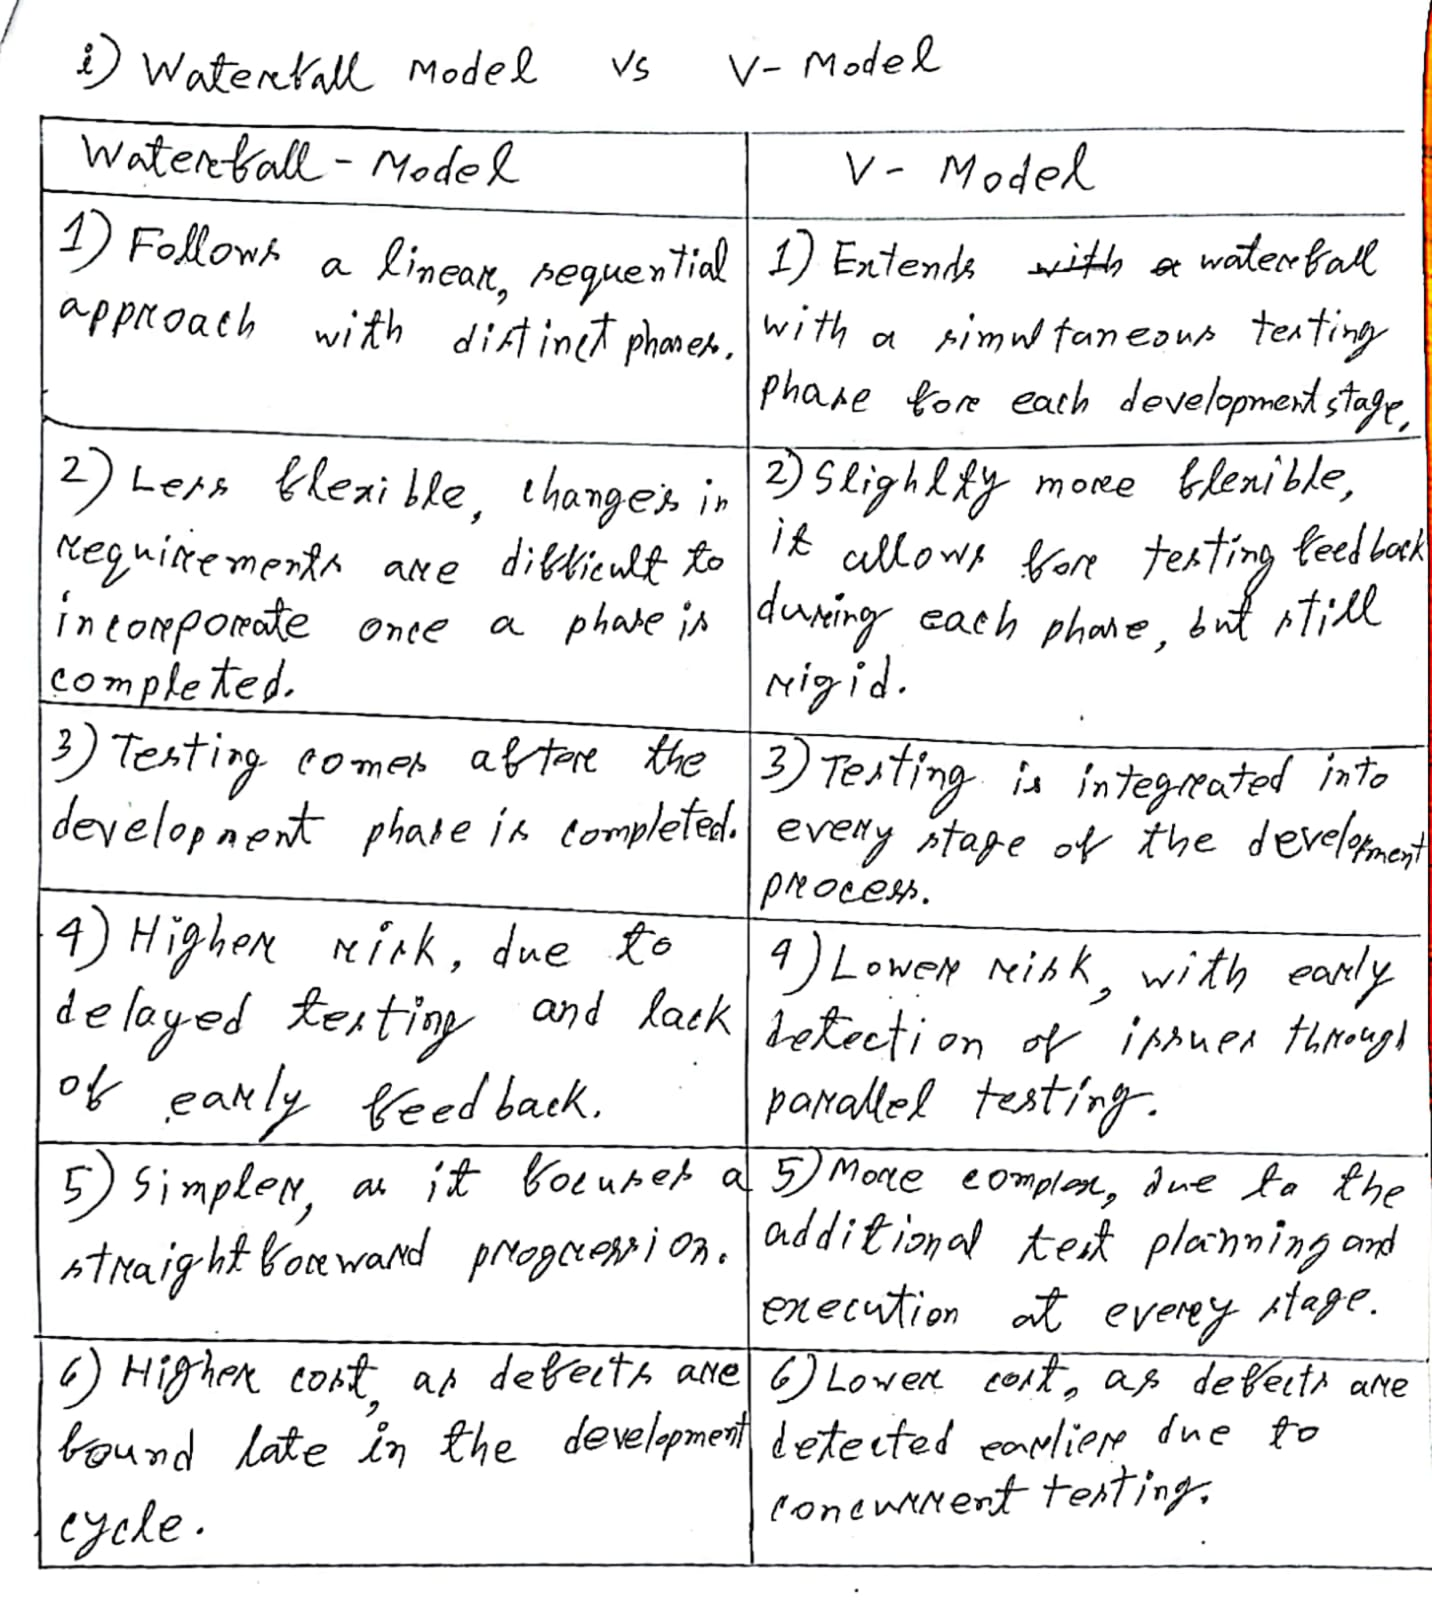 i) Waterfall Model vs V- Model
Waterfall - Model
V- Model
1) Follows a linear, sequential
approach with distinct phases.
1) Extends with a waterfall
with a simultaneous testing
phase for each development stage.
2) Less flexible, changes in
requirements are difficult to
incorporate once a phase is
completed.
2) Slighlty more flexible,
it allows for testing feedback
during each phase, but still
rigid.
3) Testing comes after the
development phase is completed.
3) Testing is integrated into
every stage of the development
process.
4) Higher risk, due to
delayed testing and lack
of early feedback.
4) Lower risk, with early
detection of issues through
parallel testing.
5) Simpler, as it focuses a
straightforward progression.
5) More complex, due to the
additional test planning and
execution at every stage.
6) Higher cost, as defects are
found late in the development
cycle.
6) Lower cost, as defects are
detected earlier due to
concurrent testing.